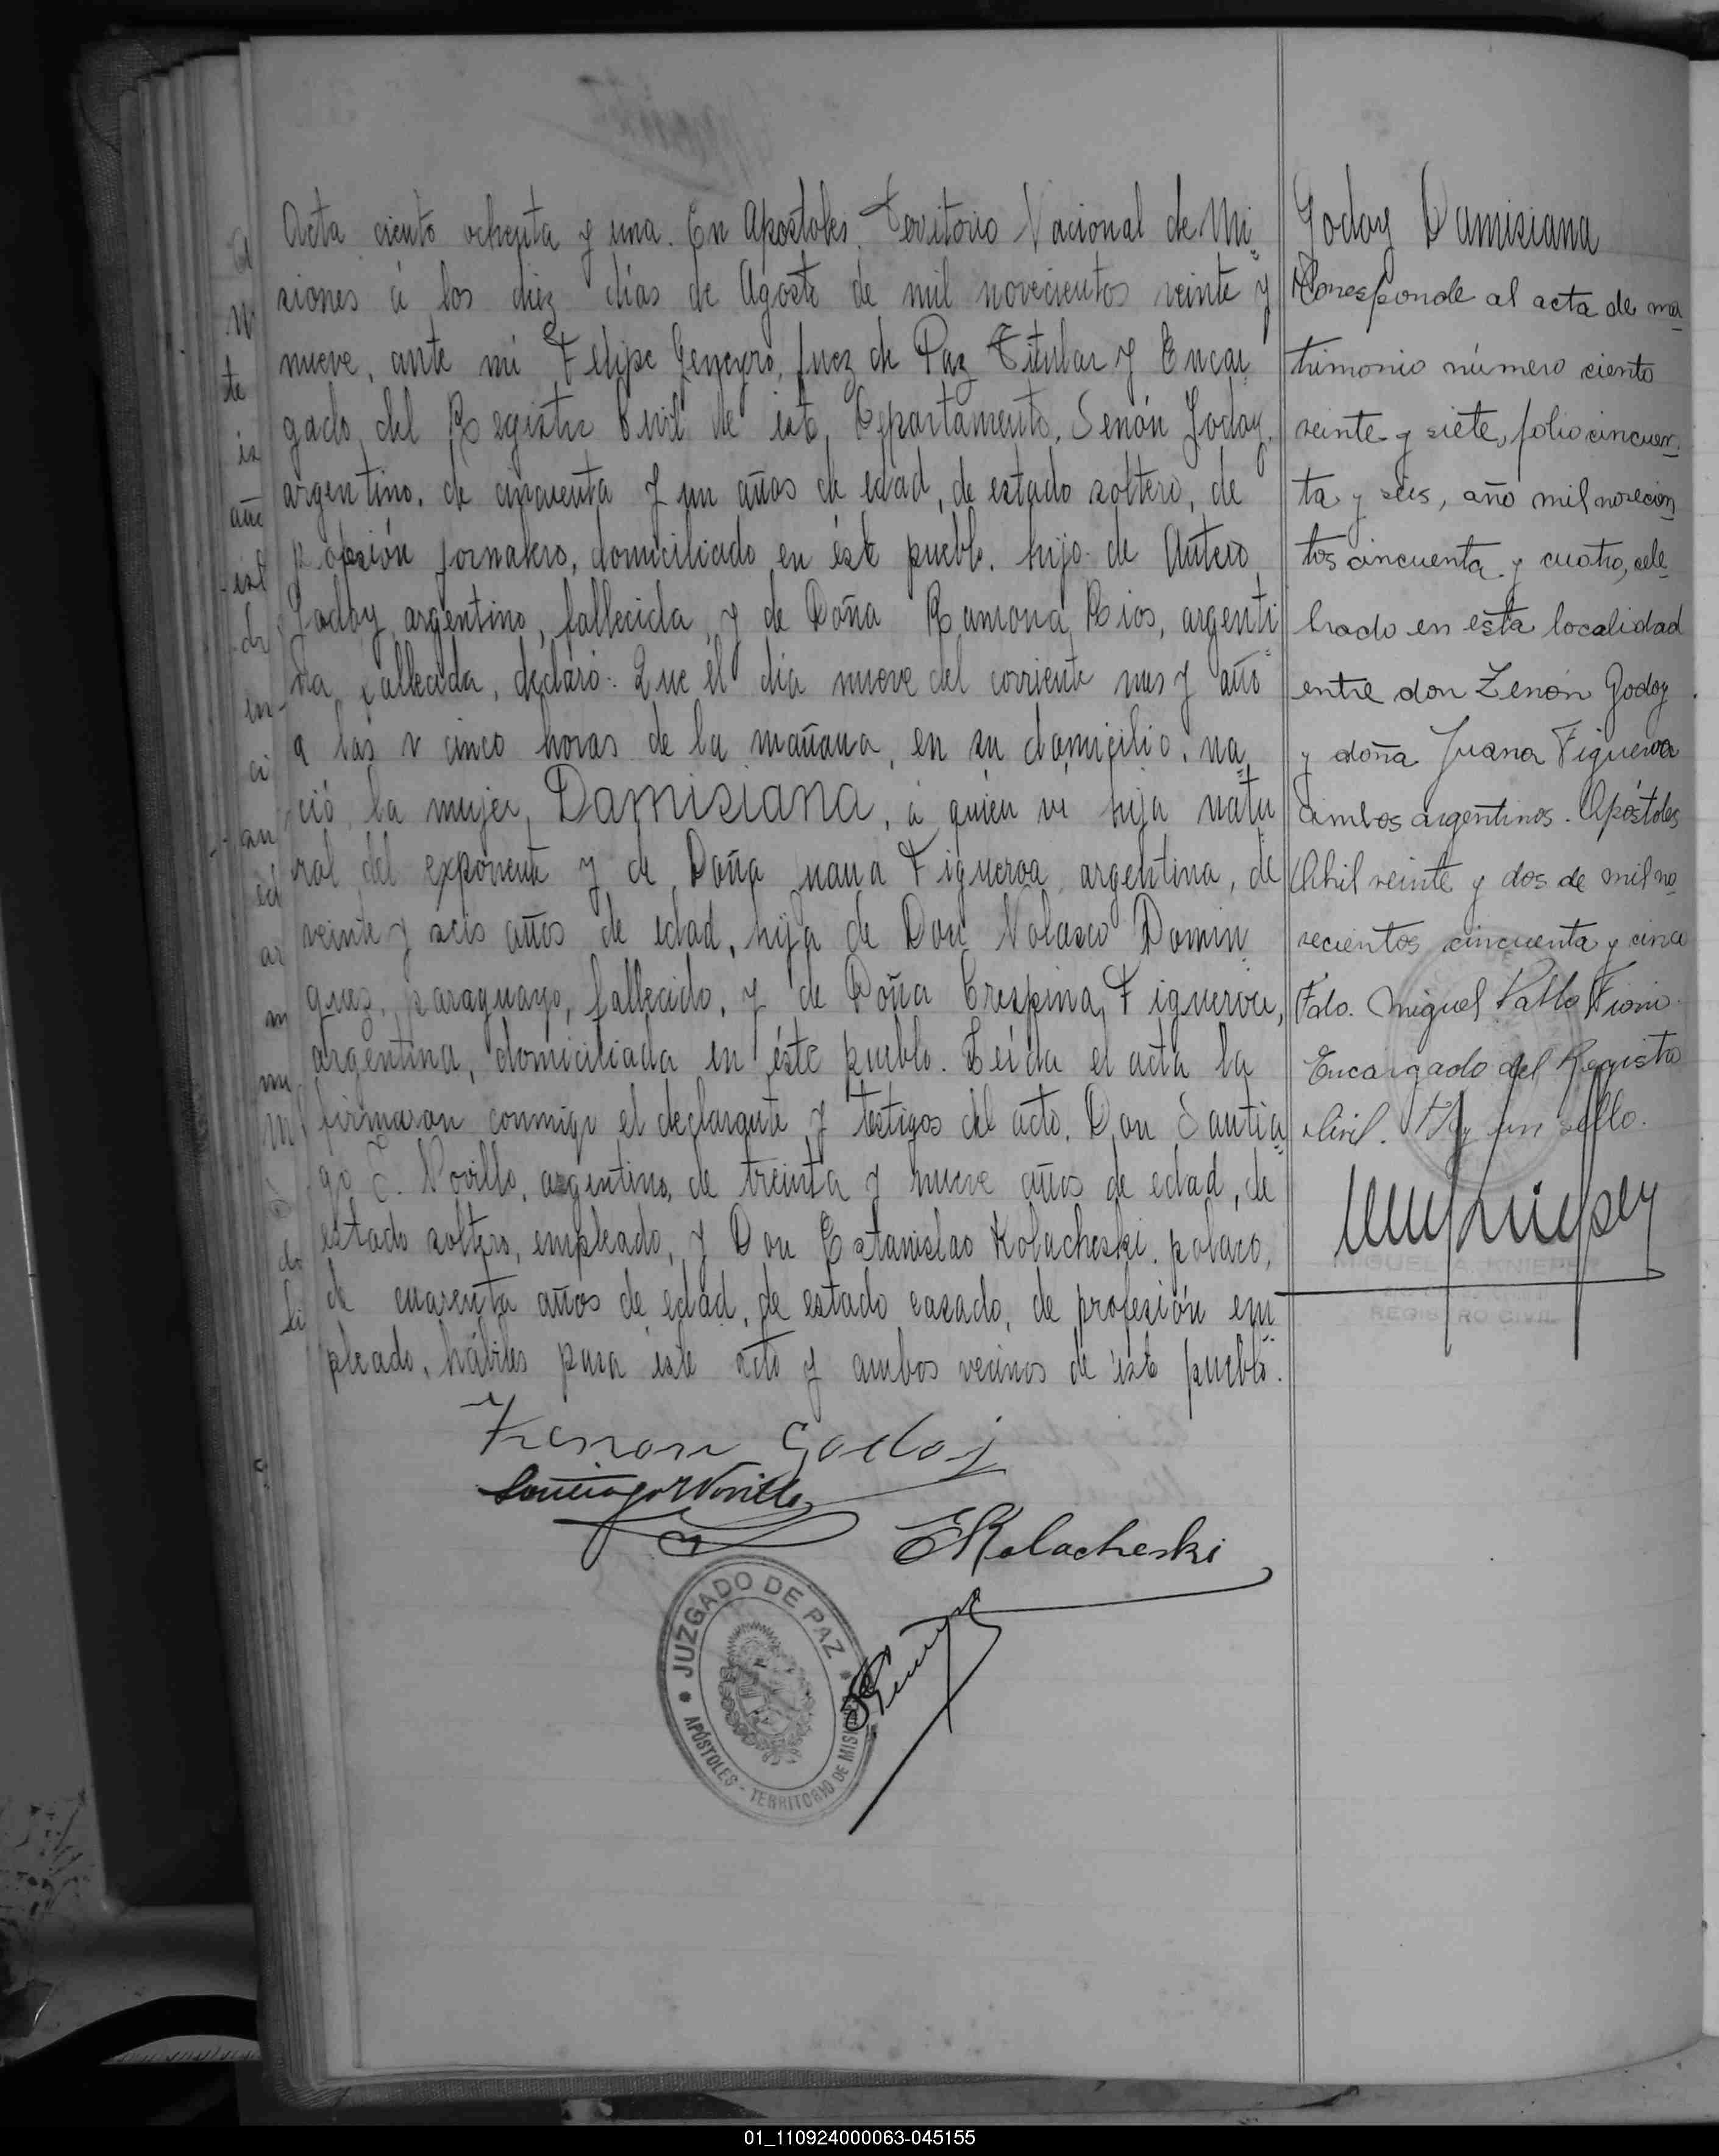 Acta ciento ochenta y una. En Apostoles, Territorio Nacional de Mi
siones á los diez días de Agosto de mil novecientos veinte y
nueve, ante mi Felipe Geneyro, Juez de Paz Titular y Encar
gado del Registro Civil de este Departamento, Senón Godoy,
argentino, de cincuenta y un años de edad, de estado soltero, de
profesión jornalero, domiciliado en éste pueblo, hijo de Antero
Godoy, argentino, fallecida, y de Doña Ramona Rios, argenti
na, fallecida, declaró: Que él día nueve del corriente mes y año
a las cinco horas de la mañana, en su domicilio, na
ció la mujer, Damisiana, á quien vi hija natu
ral del exponente y de Doña Juana Figueroa argentina, de
veinte y seis años de edad, hija de Don Nolasco Domin
guez, paraguayo, fallecido, y de Doña Crespina Figueroa,
argentina, domiciliada en éste pueblo. Leída el acta la
firmaron conmigo el declarante y testigos del acto, Don Santia
go Novillo, argentino, de treinta y nueve años de edad, de
estado soltero, empleado, y Don Estanislao Kolacheski, polaco,
de cuarenta años de edad, de estado casado, de profesión em
pleado, hábiles para éste acto y ambos vecinos de éste pueblo.
Zenon Godoy
Santiago Novillo
EKolacheski
JUZGADO DE PAZ
APÓSTOLES - TERRITORIO DE MISIONES
Godoy Damisiana
Corresponde al acta de ma
trimonio número ciento
veinte y siete, folio cincuen
ta y seis, año mil novecien
tos cincuenta y cuatro, cele
brado en esta localidad
entre don Zenón Godoy
y doña Juana Figueroa
ambos argentinos. Apóstoles
Abril veinte y dos de mil no
vecientos cincuenta y cinco
Fdo. Miguel Pablo
Encargado del Registro
Civil. Hay un sello.
MIGUEL A. KNIEPER
REGISTRO CIVIL
01_110924000063-045155